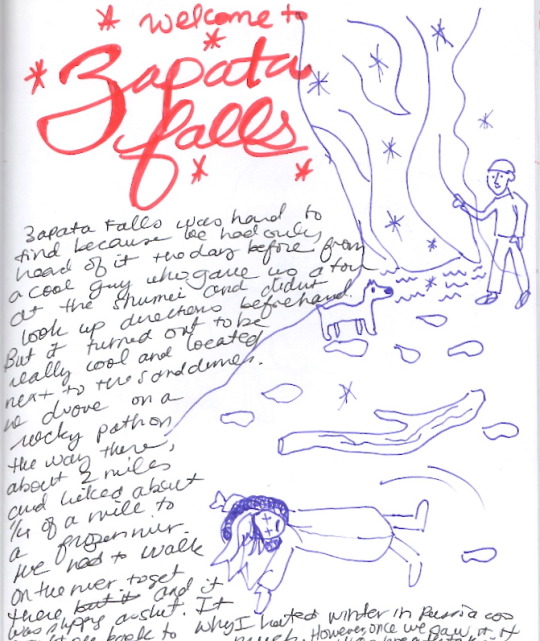 welcome to
Zapata
falls
Zapata Falls was hard to
find because we had only
head of it the day before from
a cool guy who gave us a tour
at the Shumei and didnt
look up directions beforehand.
But it turned out to be
really cool and located
next to the sanddunes.
we drove on a
rocky path on
the way there,
about 2 miles
and hiked about
1/4 of a mile to
a frozen river.
We had to walk
on the river to get
there but it and it
was slippy as shit. It
back to why I hated winter in Russia cos
much. However, once we saw it, it